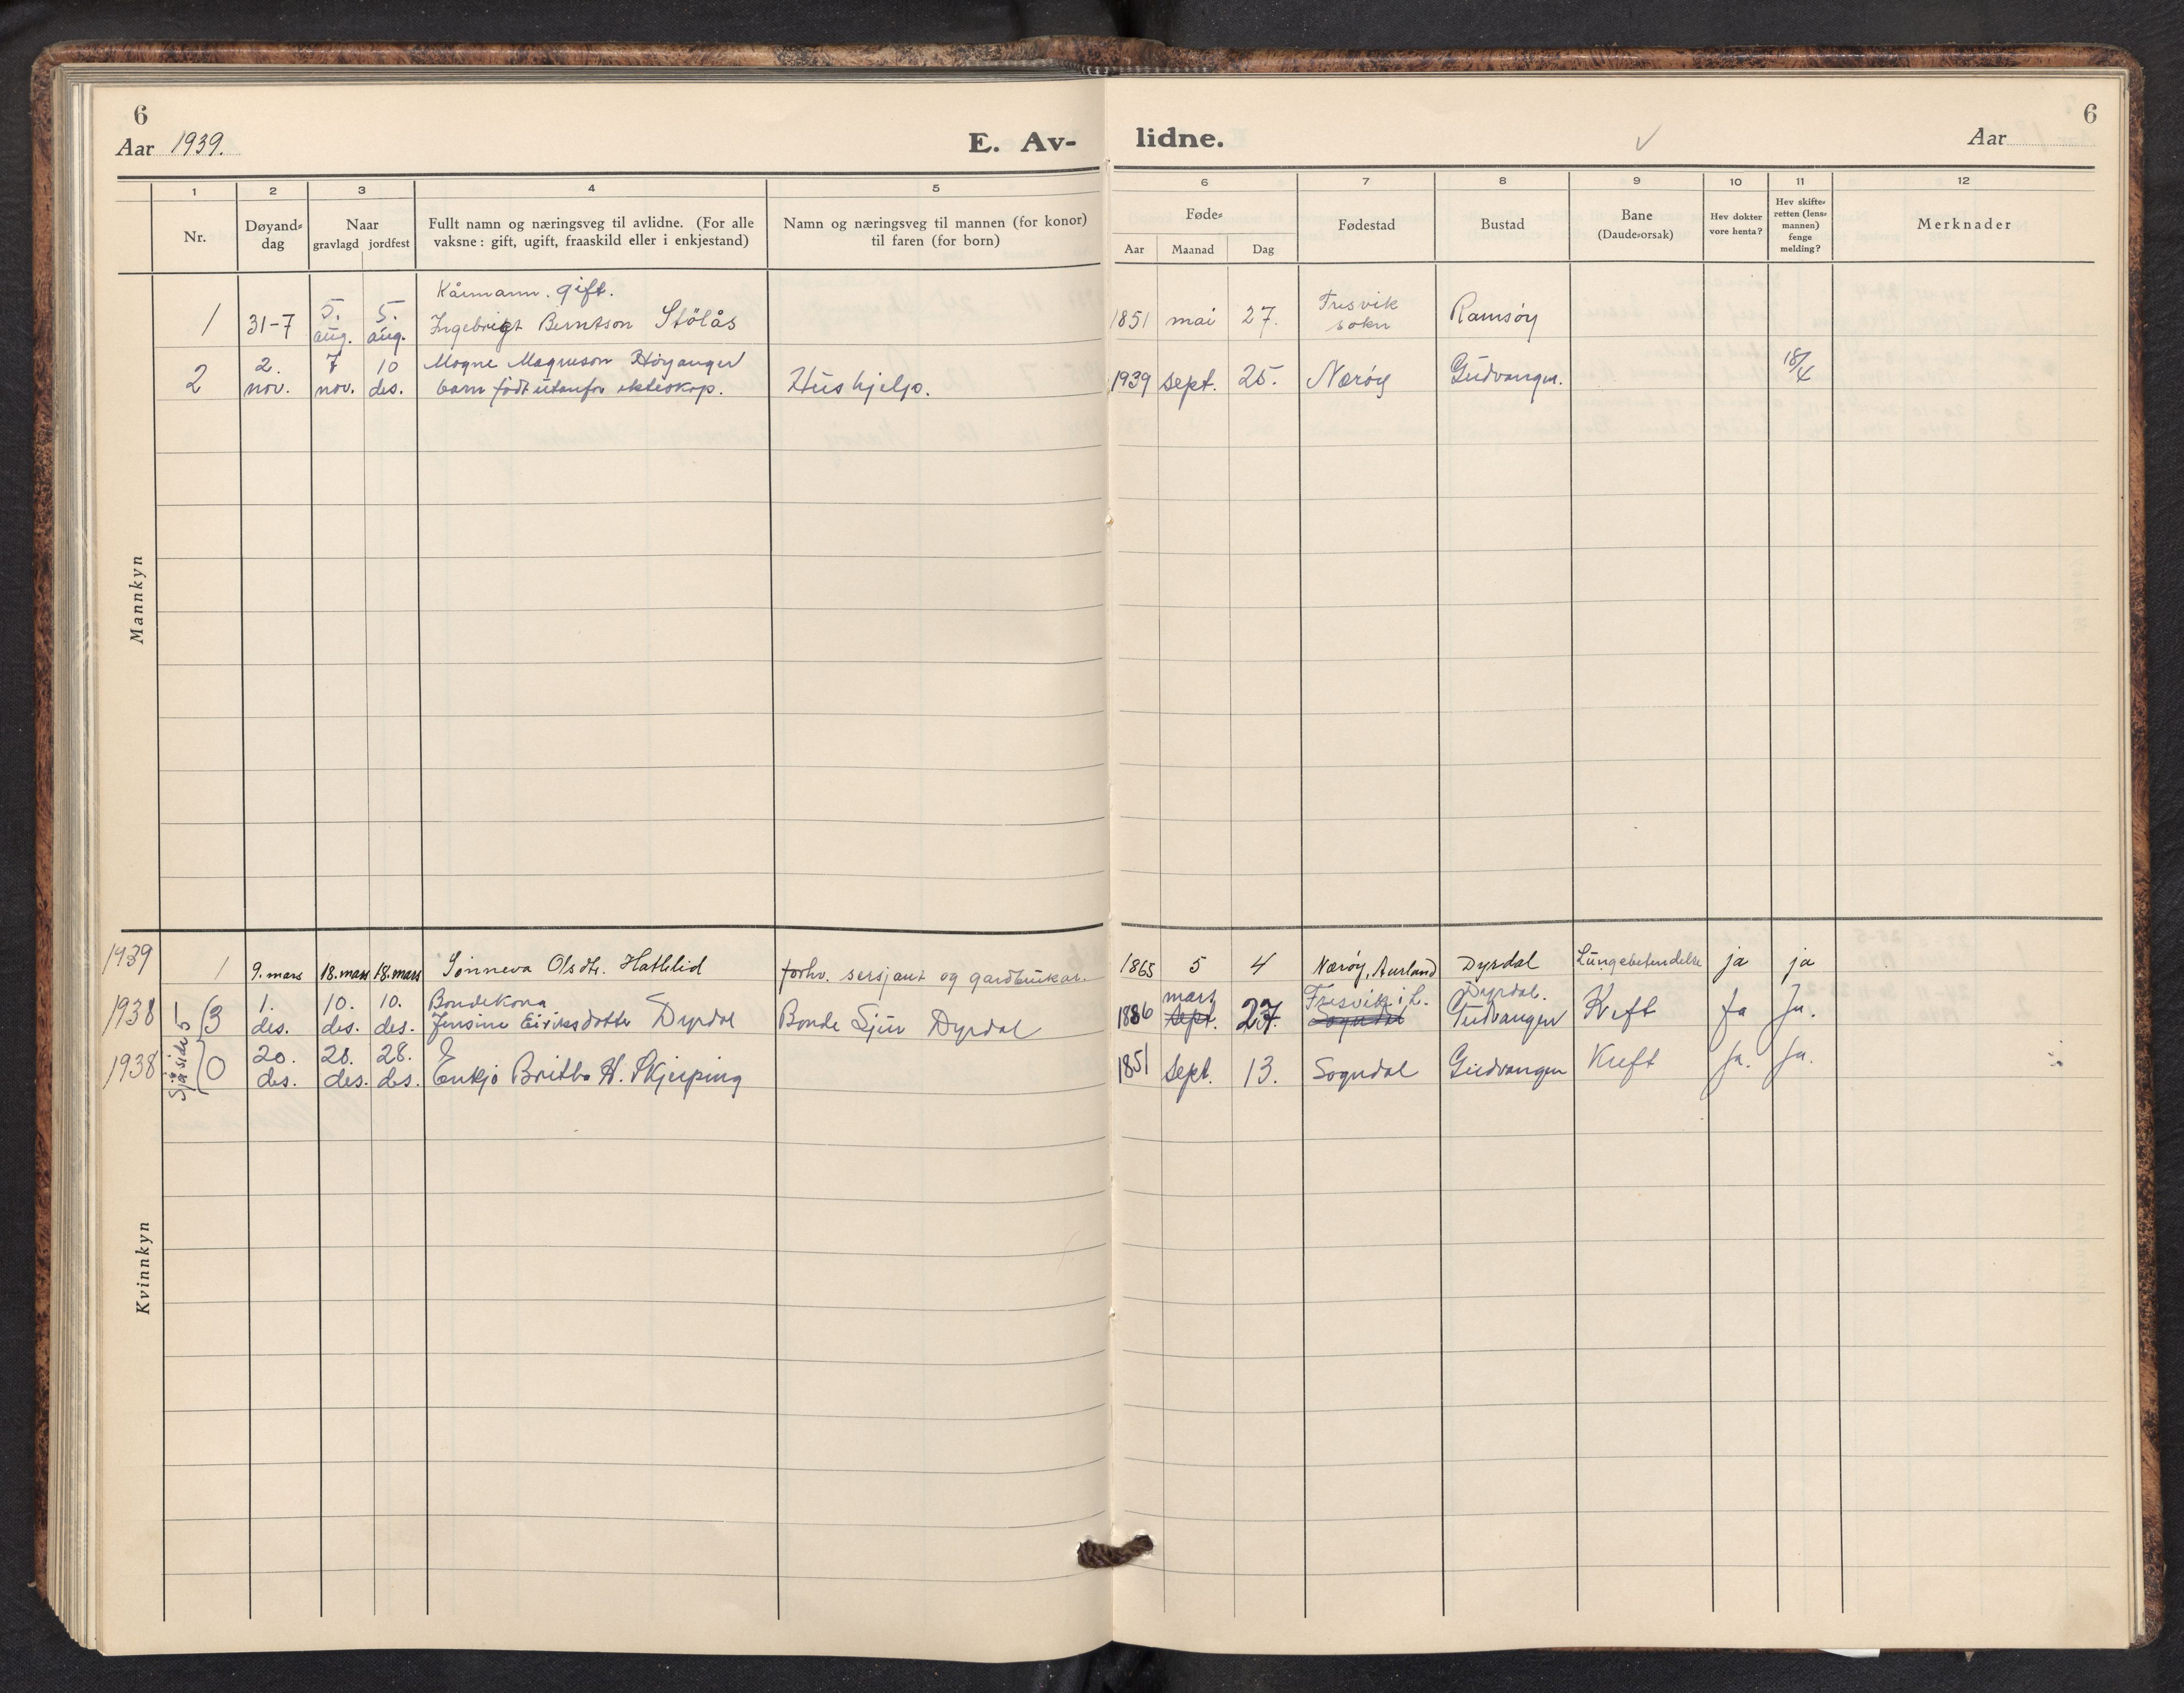 6
Aar 1939.
E. Av-
lidne.
6
Aar
1
2
3
4
5
6
7
8
9
10
11
12
Nr.
Døyand-
dag
Naar
gravlagd jordfest
Fullt namn og næringsveg til avlidne. (For alle
vaksne: gift, ugift, fraaskild eller i enkjestand)
Namn og næringsveg til mannen (for konor)
til faren (for born)
Føde-
Aar Maanad Dag
Fødestad
Bustad
Bane
(Daude-orsak)
Hev dokter
vore henta?
Hev skifte-
retten (lens-
mannen)
fenge
melding?
Merknader
Mannkyn
Kårmann. gift.
1 31-7 5. aug. 5. aug. Ingebrigt Berntson Stölås 1851 mai 27. Fresvik sokn Ramsöy
2 2. nov. 7 nov. 10 des. Mogne Magneson Höyanger
barn född utanfor ekteskap. Hushjelp. 1939 sept. 25. Næröy Gudvangen. 18/4
Kvinnkyn
1939 1 9. mars 18. mars 18. mars Sönneva Olsdtr. Hatlelid forhv. sersjant og gardbrukar. 1865 5 4 Næröy, Aurland Dyrdal Lungebetendelse ja ja
Sjå side 5
1938 3 1. des. 10. des. 10. des. Bondekona
Jensine Eiriksdotter Dyrdal Bonde Sjur Dyrdal 1886 mars sept. 27. Fresvik i L. Sogndal Dyrdal. Gudvangen Kreft Ja Ja.
1938 0 20. des. 28. des. 28. des. Enkje Britha H. Skjerping 1851 sept. 13. Sogndal Gudvangen Kreft Ja. Ja.